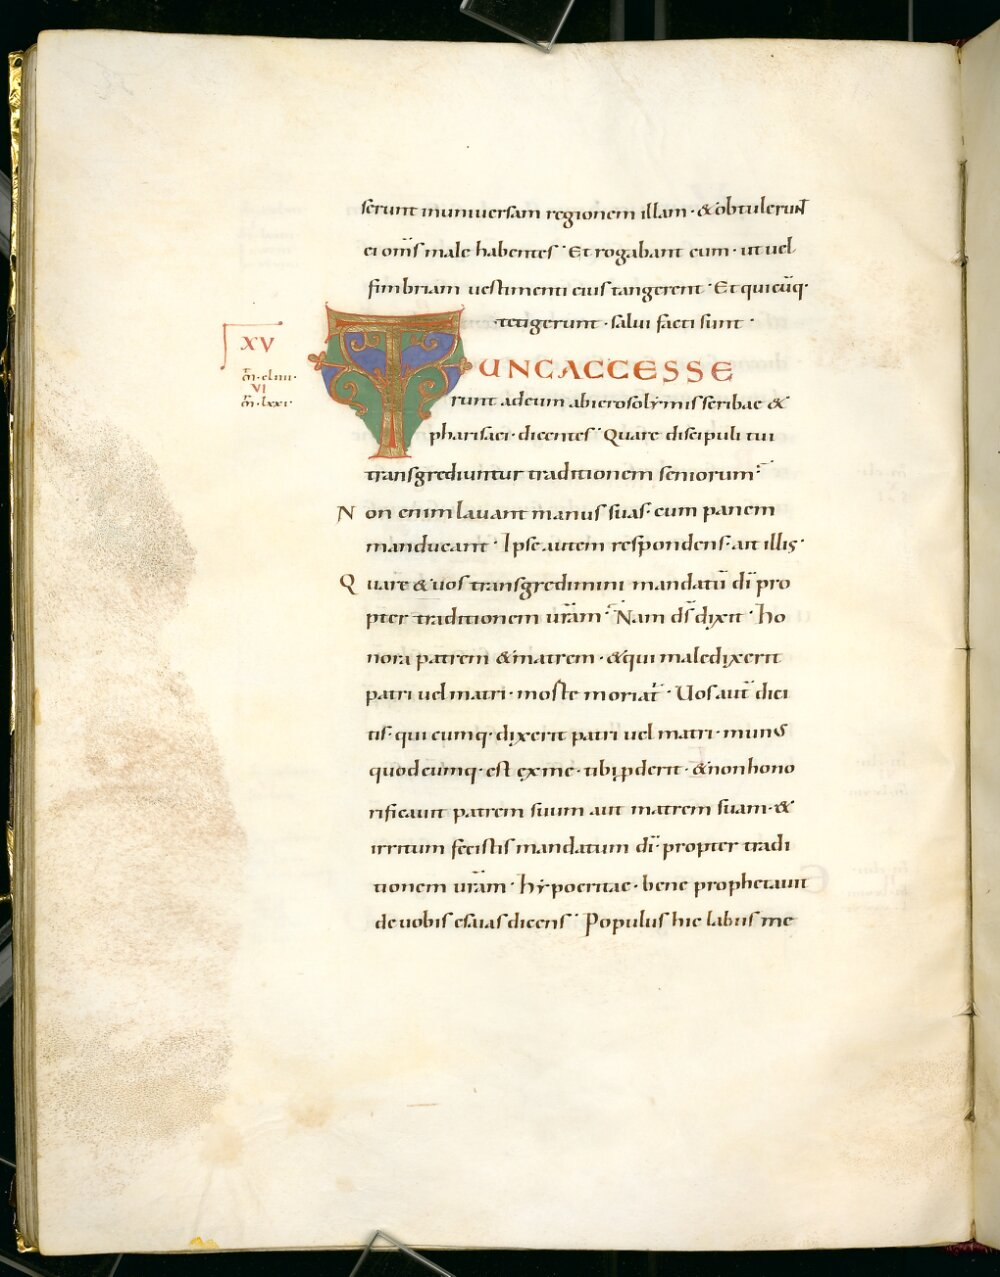 serunt inuniuersam regionem illam · & obtulerunt
ei om̄s male habentes · Et rogabant eum · ut uel
fimbriam uestimenti eius tangerent · Et quicūq·
tetigerunt · salui facti sunt ·
XV
TUNC ACCESSE
m̄ · cliiii ·
VI
m̄ · lxxi ·
runt ad eum ab ierosolymis scribae &
pharisaei · dicentes · Quare discipuli tui
transgrediuntur traditionem seniorum?
Non enim lauant manus suas · cum panem
manducant · Ipse autem respondens · ait illis ·
Quare & uos transgredimini mandatū dī pro
pter traditionem ur̄am · Nam ds̄ dixit · Ho
nora patrem & matrem · & qui maledixerit
patri uel matri · morte moriat̄ · Uos aut̄ dici
tis · qui cumq· dixerit patri uel matri · munus
quodcumq· est ex me · tibi ꝓderit · & non hono
rificauit patrem suum aut matrem suam · &
irritum fecistis mandatum dī · propter tradi
tionem ur̄am · Hypocritae · bene prophetauit
de uobis esaias dicens · Populus hic labiis me